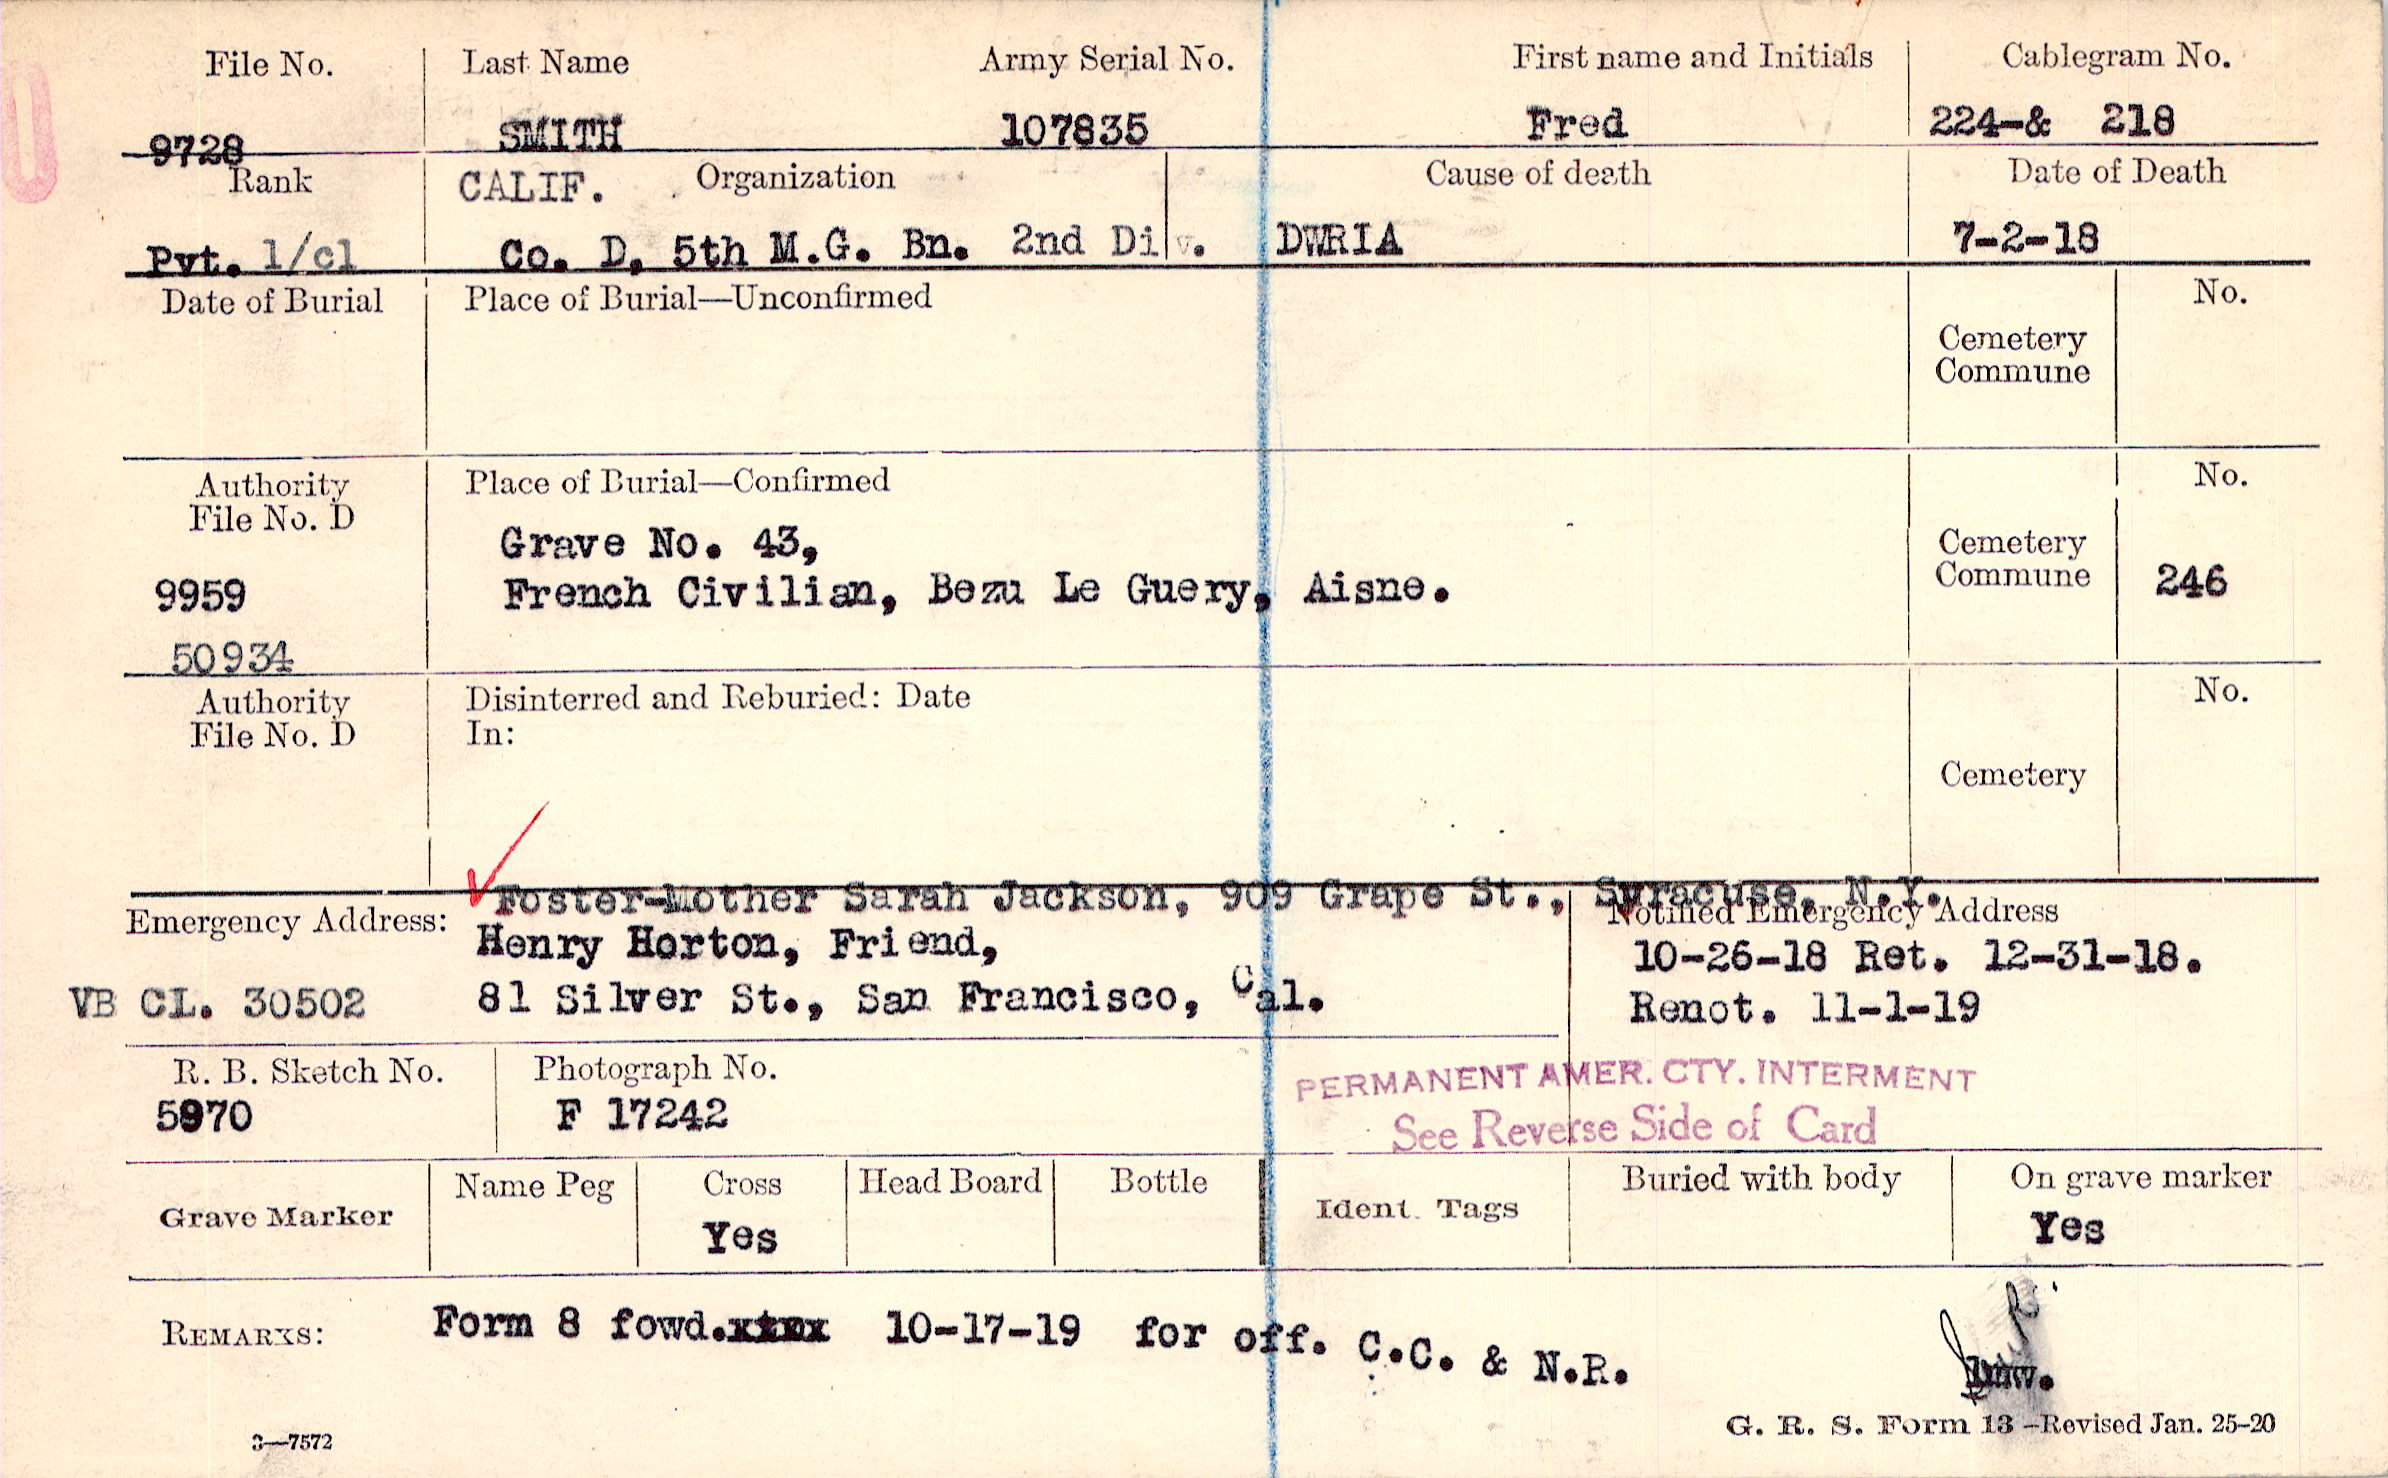 File No. Last Name Army Serial No. First name and Initials Cablegram No.
9728 SMITH 107835 Fred 224-& 218
Rank CALIF. Organization Cause of death Date of Death
Pvt. 1/cl Co. D, 5th M.G. Bn. 2nd Div. DWRIA 7-2-18
Date of Burial Place of Burial—Unconfirmed No.
Cemetery
Commune
Authority Place of Burial—Confirmed No.
File No. D
Grave No. 43, Cemetery
9959 French Civilian, Bezu Le Guery, Aisne. Commune 246
50934
Authority Disinterred and Reburied: Date No.
File No. D In:
Cemetery
Foster-Mother Sarah Jackson, 909 Grape St., Syracuse, N.Y.
Emergency Address: Notified Emergency Address
Henry Horton, Friend, 10-26-18 Ret. 12-31-18.
VB CL. 30502 81 Silver St., San Francisco, Cal. Renot. 11-1-19
R. B. Sketch No. Photograph No. PERMANENT AMER. CTY. INTERMENT
5970 F 17242 See Reverse Side of Card
Grave Marker Name Peg Cross Head Board Bottle Ident. Tags Buried with body On grave marker
Yes Yes
REMARKS: Form 8 fowd. 10-17-19 for off. C.C. & N.R.
lmw.
G. R. S. Form 13—Revised Jan. 25-20
3—7572